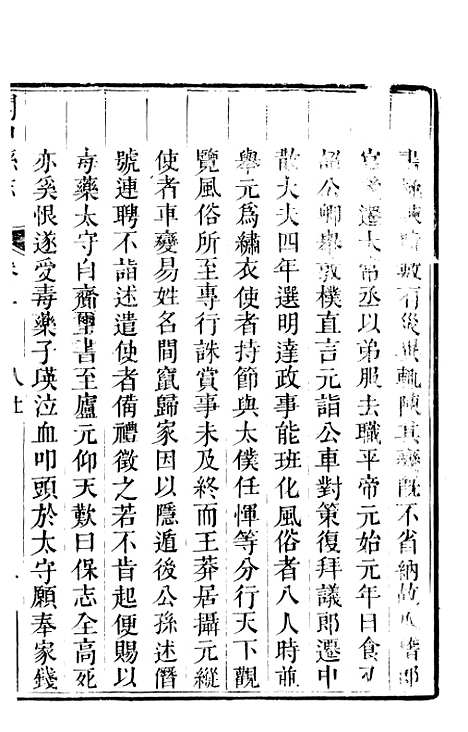 數有災異輒陳其變既不省納故久滯郎
官後遷太常丞以弟服去職平帝元始元年日食
詔公卿舉敦樸直言元詣公車對策復拜議郎遷中
散大夫四年選明達政事能班化風俗者八人時並
舉元爲繡衣使者持節與太僕任惲等分行天下觀
覽風俗所至專行誅賞事未及終而王莽居攝元縱
使者車變易姓名間竄歸家因以隱遁後公孫述僭
號連聘不詣述遣使者備禮徵之若不肯起便賜以
毒藥太守自齎璽書至廬元仰天歎曰保志全高死
亦奚恨遂受毒藥子瑛泣血叩頭於太守願奉家錢
縣志
卷
人士